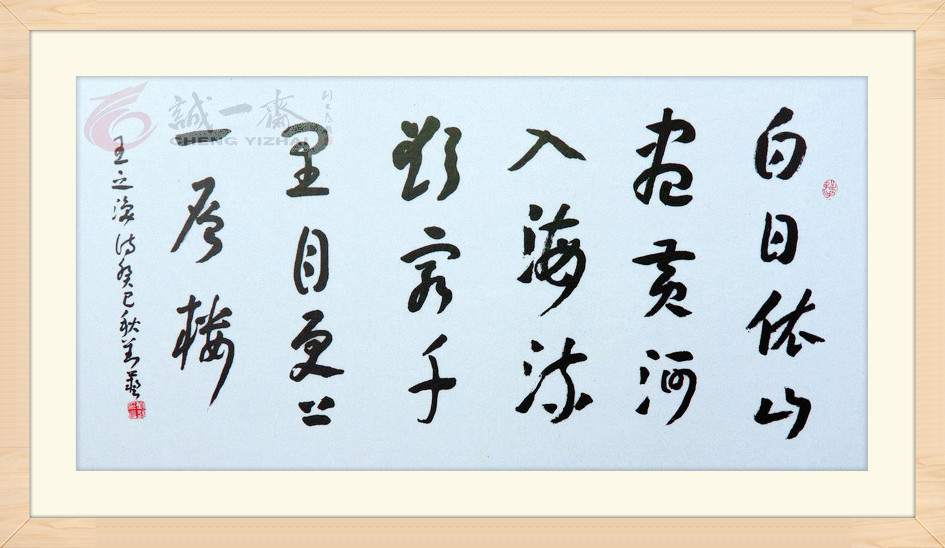 白日依山
盡黄河
入海流
欲穷千
里目更上
一层楼
王之涣诗癸巳秋
誠一齋
CHENG YIZHAI